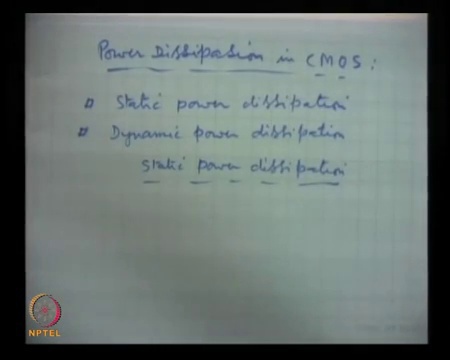 Power Dissipation in CMOS :
Static power dissipation
Dynamic power dissipation
Static power dissipation
NPTEL